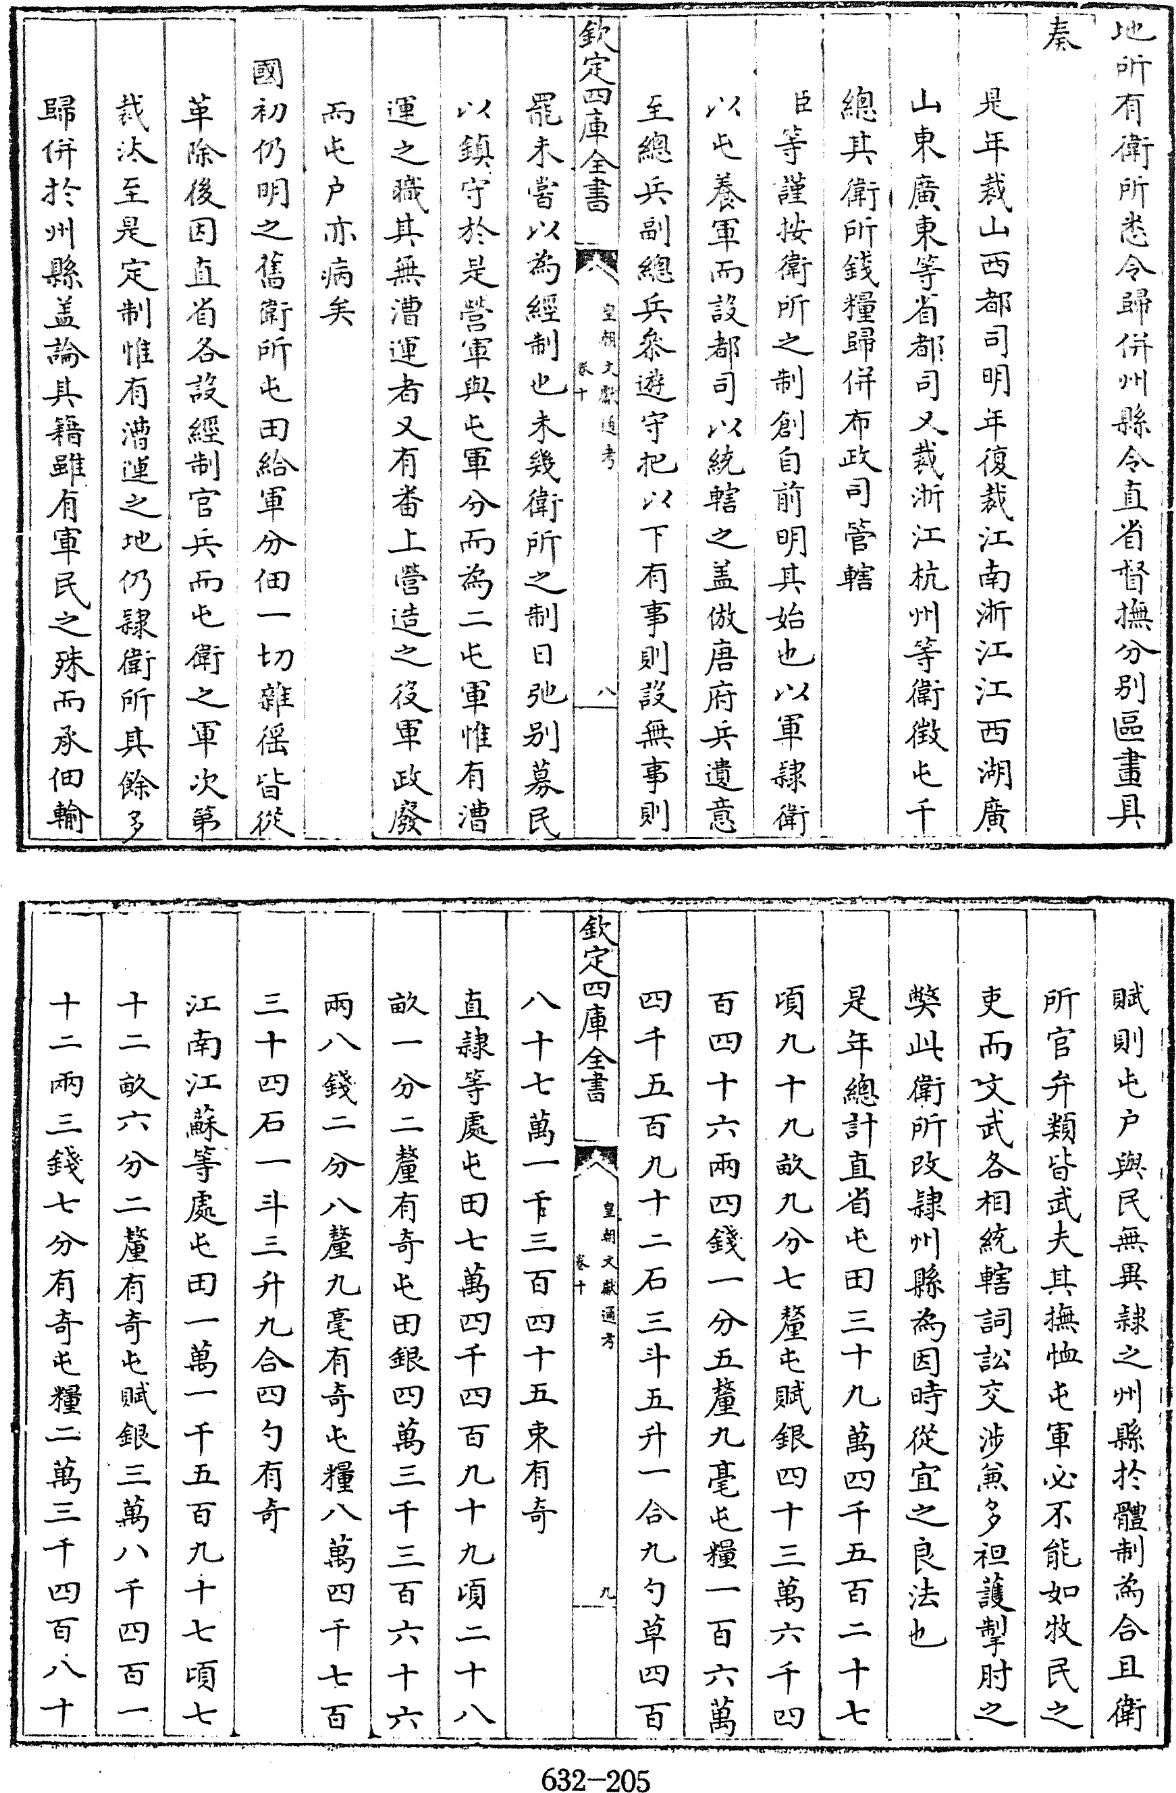 地所有衛所悉令歸併州縣令直省督撫分别區畫具
奏
是年裁山西都司明年復裁江南浙江江西湖廣
山東廣東等省都司又裁浙江杭州等衛徴屯千
總其衛所錢糧歸併布政司管轄
臣等謹按衛所之制創自前明其始也以軍隷衛
以屯養軍而設都司以統轄之盖倣唐府兵遺意
至總兵副總兵叅遊守把以下有事則設無事則
欽定四庫全書
皇朝文獻通考
卷十
八
罷未嘗以為經制也未幾衛所之制日弛别募民
以鎮守於是營軍與屯軍分而為二屯軍惟有漕
運之職其無漕運者又有畨上營造之役軍政廢
而屯户亦病矣
國初仍明之舊衛所屯田給軍分佃一切雜徭皆從
革除後因直省各設經制官兵而屯衛之軍次第
裁汰至是定制惟有漕運之地仍隷衛所其餘多
歸併於州縣盖論其籍雖有軍民之殊而承佃輸
賦則屯户與民無異隷之州縣於體制為合且衛
所官弁類皆武夫其撫恤屯軍必不能如牧民之
吏而文武各相統轄詞訟交涉兼多袒護掣肘之
弊此衛所改隷州縣為因時從宜之良法也
是年總計直省屯田三十九萬四千五百二十七
頃九十九畝九分七釐屯賦銀四十三萬六千四
百四十六兩四錢一分五釐九毫屯糧一百六萬
四千五百九十二石三斗五升一合九勺草四百
欽定四庫全書
皇朝文獻通考
卷十
九
八十七萬一千三百四十五束有奇
直隷等處屯田七萬四千四百九十九頃二十八
畝一分二釐有奇屯田銀四萬三千三百六十六
兩八錢二分八釐九毫有奇屯糧八萬四千七百
三十四石一斗三升九合四勺有奇
江南江蘇等處屯田一萬一千五百九十七頃七
十二畝六分二釐有奇屯賦銀三萬八千四百一
十二兩三錢七分有奇屯糧二萬三千四百八十
632-205